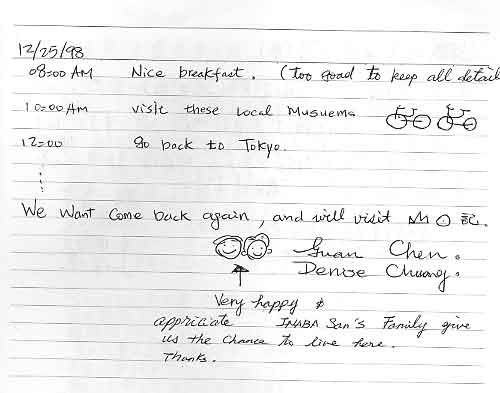 12/25/98
08:00 AM Nice breakfast. (too good to keep all detail
10:00 AM visit these Local Musuems
12:00 Go back to Tokyo.
We want come back again, and will visit 記.
Guan Chen.
Denise Chuang.
Very happy &
appriciate INABA San's Family give
us the chance to live here.
Thanks.